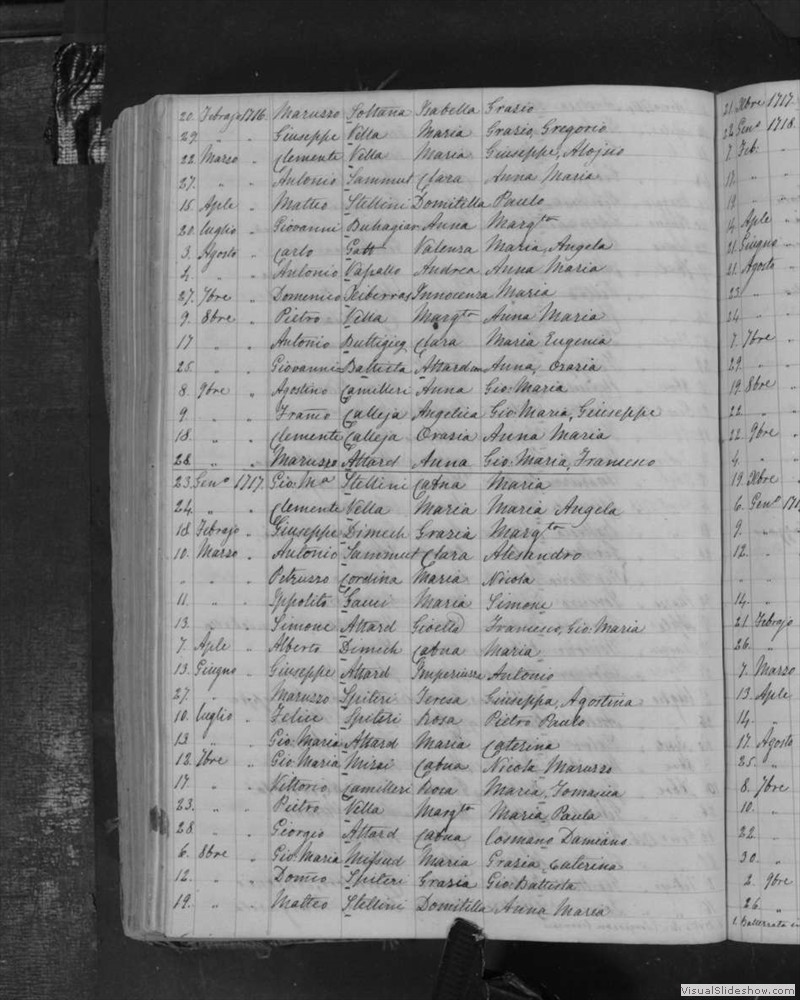 20. Febrajo 1716. Marusso Soltana Isabella Grasio
29. " " Giuseppe Vella Maria Grasio, Gregorio
22 Marzo " Clemente Vella Maria Giuseppe, Alojsio
27. " " Antonio Sammut Clara Anna Maria
15. Aple " Matteo Stellini Domitella Paulo
20. Luglio " Giovanni Buhagiar Anna Margta
3. Agosto " Carlo Gatt Valensa Maria, Angela
2. " " Antonio Vapallo Andrea Anna Maria
27. 7bre " Domenico Xiberras Innocenza Maria
9. 8bre " Pietro Vella Margta Anna Maria
17 " " Antonio Buttigieg Clara Maria Eugenia
25. " " Giovanni Battista Attard Anna, Orasia
8. 9bre " Agostino Camilleri Anna Gio: Maria
9 " " Franco Calleja Angelica Gio: Maria, Giuseppe
18. " " Clemente Calleja Orasia Anna Maria
28. " " Marusso Attard Anna Gio: Maria, Francesco
23. Geno 1717. Gio: Ma Stellini Catna Maria
24. " " Clemente Vella Maria Maria Angela
18 Febrajo " Giuseppe Dimech Grazia Margta
10. Marzo " Antonio Sammut Clara Alesandro
" " " Petrusso Cordina Maria Nicola
11. " " Ippolito Gauci Maria Simone
13. " " Simone Attard Gioella Francesco, Gio: Maria
7. Aple " Alberto Dimech Catna Maria
13. Giugno " Giuseppe Attard Antonio
27. " " Marusso Spiteri Teresa Giuseppa, Agostina
10. Luglio " Felice Spiteri Rosa Pietro Paulo
13. " " Gio: Maria Attard Maria Caterina
12. 7bre " Gio: Maria Misai Catna Nicola Marusso
17. " " Vittorio Camilleri Rosa Maria, Tomasia
23. " " Pietro Vella Margta Maria Paula
28. " " Giorgio Attard Catna Cosmano Damiano
6. 8bre " Gio: Maria Mifsud Maria Grasia, Caterina
12. " " Domco Spiteri Grazia Gio: Battista
19. " " Matteo Stellini Domitilla Anna Maria
21. Xbre 1717.
22 Geno 1718.
7. Feb. "
17. " "
19 " "
14. Aple "
21. Giugno "
21. Agosto "
23. " "
24. " "
7. 7bre "
29. " "
19. 8bre "
22. " "
22. 9bre "
4. " "
19. Xbre "
6. Geno
9. "
12. "
" "
14. "
21. Febrajo
26. "
7. Marzo
13. Aple
14. "
17. Agosto
25. "
8. 7bre
10. "
22. "
30. "
2. 9bre
26. "
VisualSlideshow.com